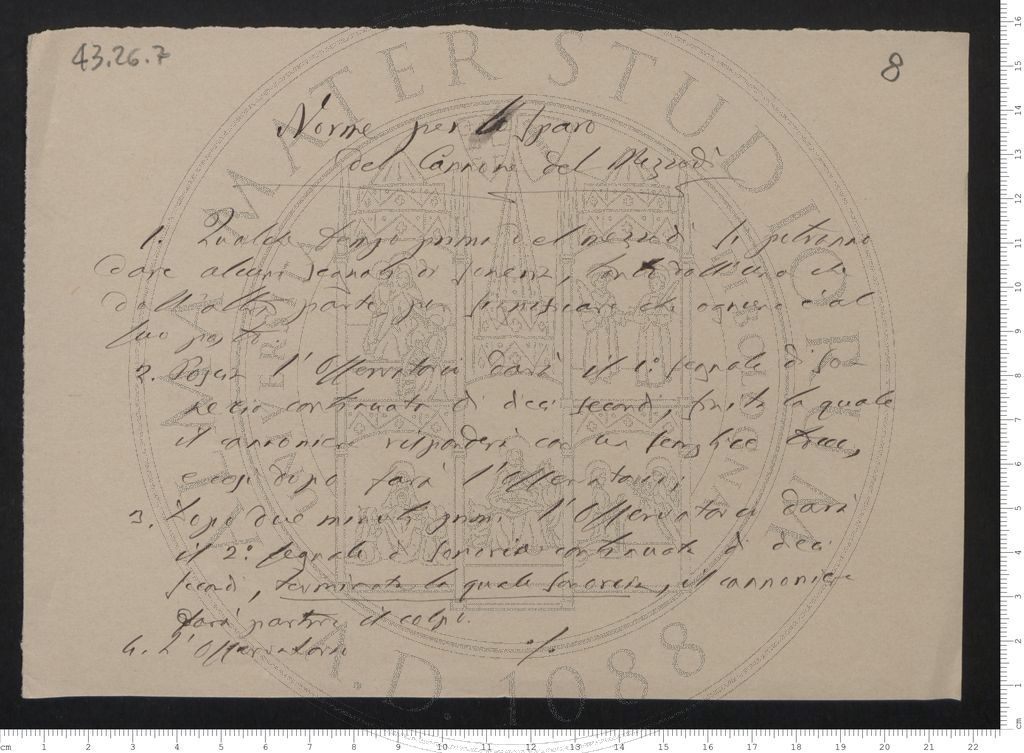 43.26.7
8
Norme per lo sparo
del Cannone del Mezzodì
1. Qualche tempo prima del mezzodì si potranno
dare alcuni segnali di soneria, tanto dall'una che
dall'altra parte, per significare che ognuno è al
suo posto.
2. Poscia l'Osservatorio darà il 1º segnale di so-
neria continuata di dieci secondi, finita la quale
il cannoniere risponderà con un semplice
e così dopo farà l'Osservatorio;
3. Dopo due minuti primi l'Osservatorio darà
il 2º segnale di soneria continuata di dieci
secondi, terminata la quale soneria, il cannoniere
farà partire il colpo.
4. L'Osservatorio
ALMA MATER STUDIORUM
A.D. 1088